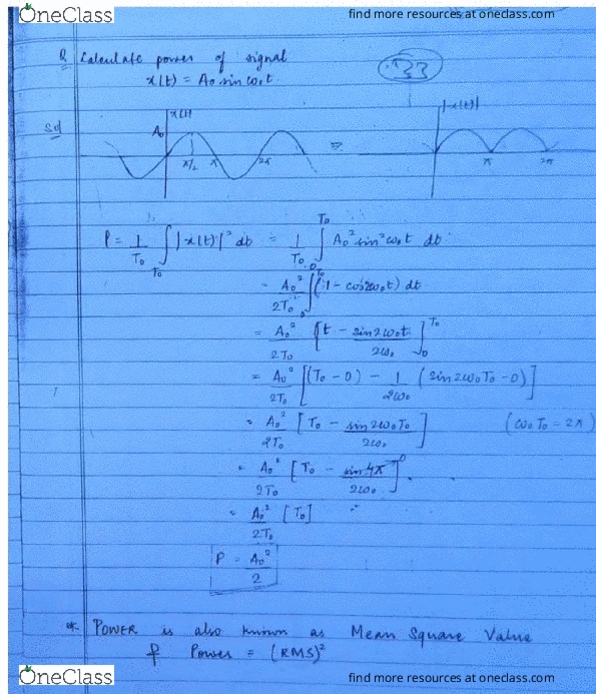 OneClass
find more resources at oneclass.com
Q. Calculate power of signal
x(t) = A₀ sin ω₀t
33
Sol
x(t)
A₀
π/2 π 2π
⇒
|x(t)|
π 2π
P = 1/T₀ ∫_T₀ |x(t)|² dt = 1/T₀ ∫₀^T₀ A₀² sin² ω₀t dt
= A₀²/2T₀ ∫₀^T₀ (1 - cos2ω₀t) dt
= A₀²/2T₀ [t - sin2ω₀t/2ω₀]₀^T₀
= A₀²/2T₀ [(T₀ - 0) - 1/2ω₀ (sin2ω₀T₀ - 0)]
= A₀²/2T₀ [T₀ - sin2ω₀T₀/2ω₀] (ω₀T₀ = 2π)
= A₀²/2T₀ [T₀ - sin4π/2ω₀]⁰
= A₀²/2T₀ [T₀]
P = A₀²/2
* POWER is also known as Mean Square Value
Power = (RMS)²
OneClass
find more resources at oneclass.com